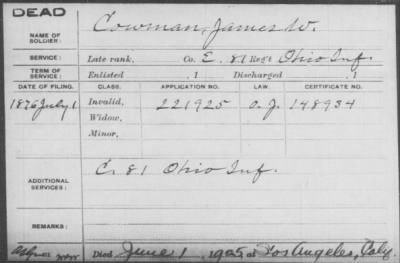 DEAD
NAME OF SOLDIER: Cowman, James W.
SERVICE: Late rank, Co. E. 81 Reg't Ohio Inf.
TERM OF SERVICE: Enlisted , 1 Discharged , 1
DATE OF FILING. CLASS. APPLICATION NO. LAW. CERTIFICATE NO.
1876 July 1 Invalid, 221925 148934
Widow,
Minor,
ADDITIONAL SERVICES: C. 81 Ohio Inf.
REMARKS:
Died June 1, 1905 at Los Angeles, Caly.